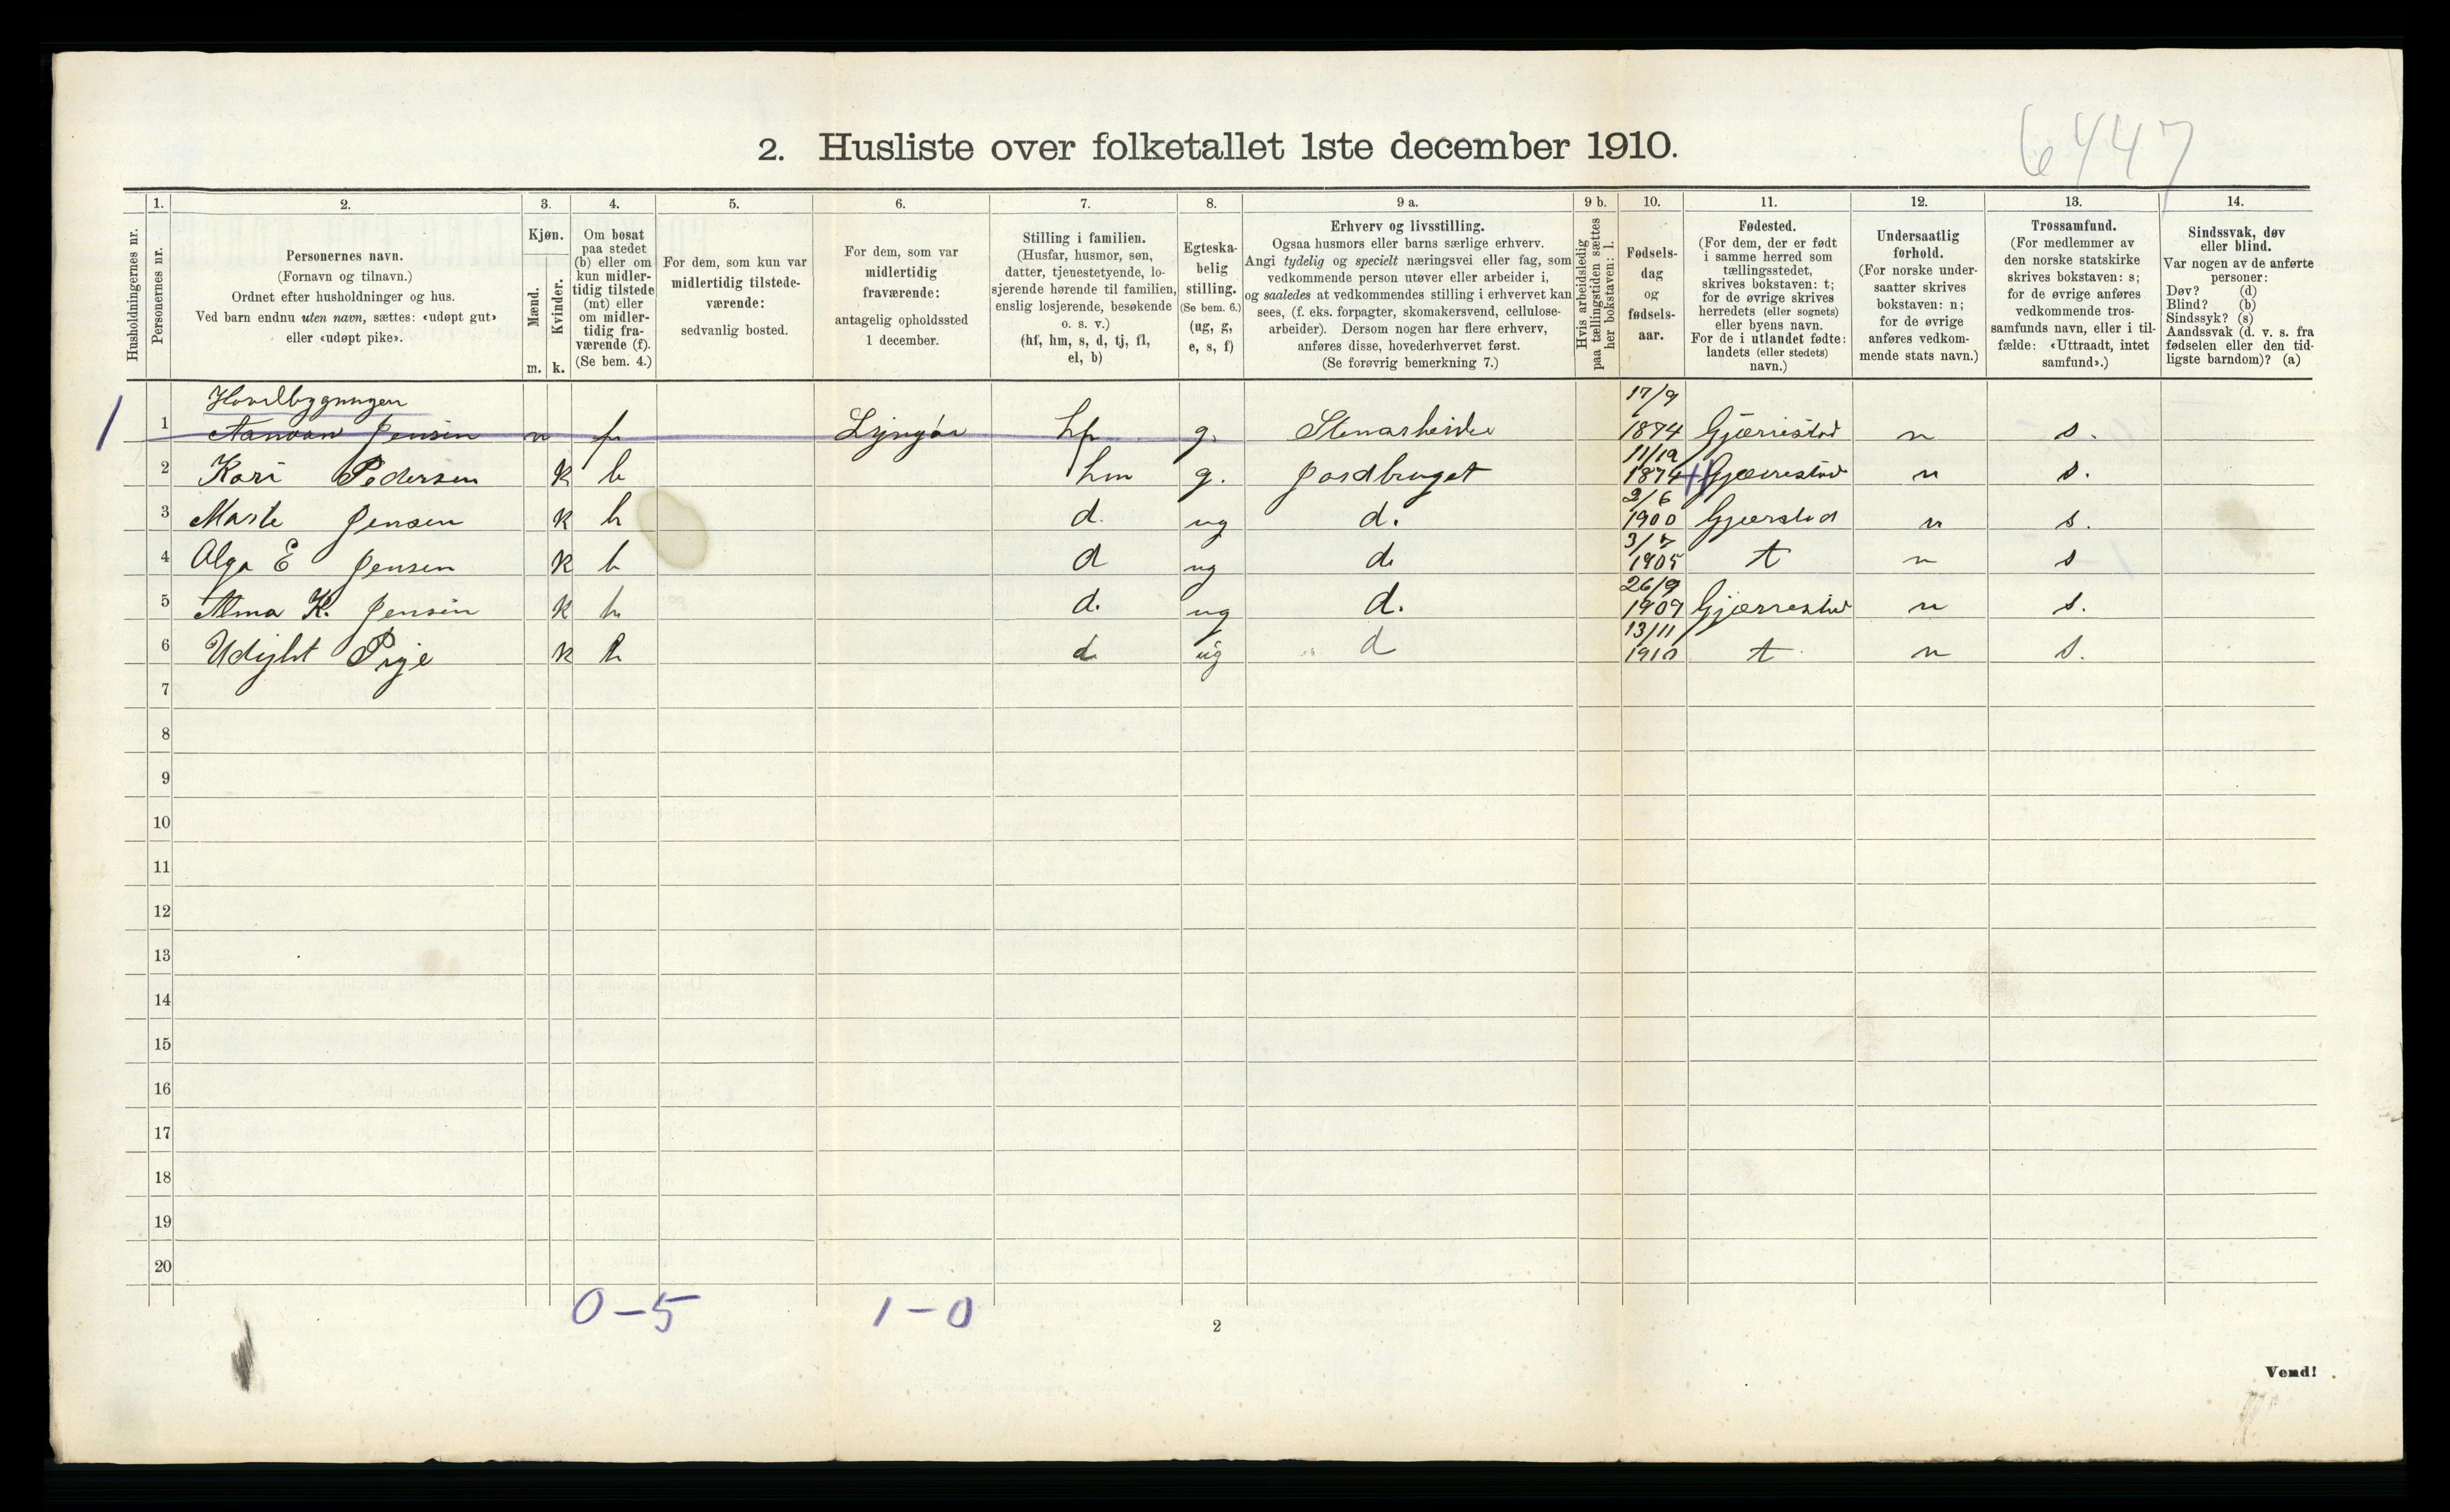 6447
2. Husliste over folketallet 1ste december 1910.
Husholdningernes nr.
1.
Personernes nr.
2.
Personernes navn.
(Fornavn og tilnavn.)
Ordnet efter husholdninger og hus.
Ved barn endnu uten navn, sættes: «udøpt gut»
eller «udøpt pike».
3.
Kjøn.
Mænd.
Kvinder.
m. k.
4.
Om bosat
paa stedet
(b) eller om
kun midler-
tidig tilstede
(mt) eller
om midler-
tidig fra-
værende (f).
(Se bem. 4.)
5.
For dem, som kun var
midlertidig tilstede-
værende:
sedvanlig bosted.
6.
For dem, som var
midlertidig
fraværende:
antagelig opholdssted
1 december.
7.
Stilling i familien.
(Husfar, husmor, søn,
datter, tjenestetyende, lo-
sjerende hørende til familien,
enslig losjerende, besøkende
o. s. v.)
(hf, hm, s, d, tj, fl,
el, b)
8.
Egteska-
belig
stilling.
(Se bem. 6.)
(ug, g,
e, s, f)
9 a.
Erhverv og livsstilling.
Ogsaa husmors eller barns særlige erhverv.
Angi tydelig og specielt næringsvei eller fag, som
vedkommende person utøver eller arbeider i,
og saaledes at vedkommendes stilling i erhvervet kan
sees, (f. eks. forpagter, skomakersvend, cellulose-
arbeider). Dersom nogen har flere erhverv,
anføres disse, hovederhvervet først.
(Se forøvrig bemerkning 7.)
9 b.
Hvis arbeidsledig
paa tællingstiden sættes
her bokstaven: l.
10.
Fødsels-
dag
og
fødsels-
aar.
11.
Fødested.
(For dem, der er født
i samme herred som
tællingsstedet,
skrives bokstaven: t;
for de øvrige skrives
herredets (eller sognets)
eller byens navn.
For de i utlandet fødte:
landets (eller stedets)
navn.)
12.
Undersaatlig
forhold.
(For norske under-
saatter skrives
bokstaven: n;
for de øvrige
anføres vedkom-
mende stats navn.)
13.
Trossamfund.
(For medlemmer av
den norske statskirke
skrives bokstaven: s;
for de øvrige anføres
vedkommende tros-
samfunds navn, eller i til-
fælde: «Uttraadt, intet
samfund».)
14.
Sindssvak, døv
eller blind.
Var nogen av de anførte
personer:
Døv? (d)
Blind? (b)
Sindssyk? (s)
Aandssvak (d. v. s. fra
fødselen eller den tid-
ligste barndom)? (a)
1 1 Jensen m f Lyngør hf g. Stenarbeider 17/9 1874 Gjærrestad n s.
2 Kari Pedersen k b hm g. Jordbruget 11/12 1874 Gjærrestad n s.
3 Marte Jensen k b d. ug d. 2/6 1900 Gjærstad n s.
4 Olga E Jensen k b d ug d. 1905 t n s
5 Alma K. Jensen k b d. ug d. 26/9 1909 Gjærrestad n s.
6 Udøbt Pige k b d ug d 13/11 1910 t n s.
7
8
9
10
11
12
13
14
15
16
17
18
19
20
0-5 1-0
2
Vend!